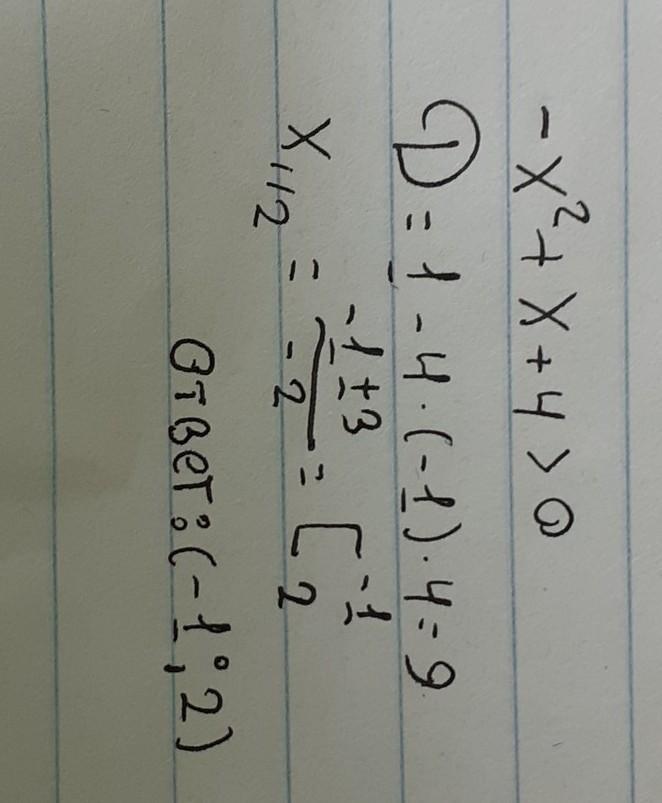 -x²+x+4>0
D=1-4·(-1)·4=9
x₁,₂ = (-1±3)/(-2) = [-1 2
Ответ: (-1; 2)